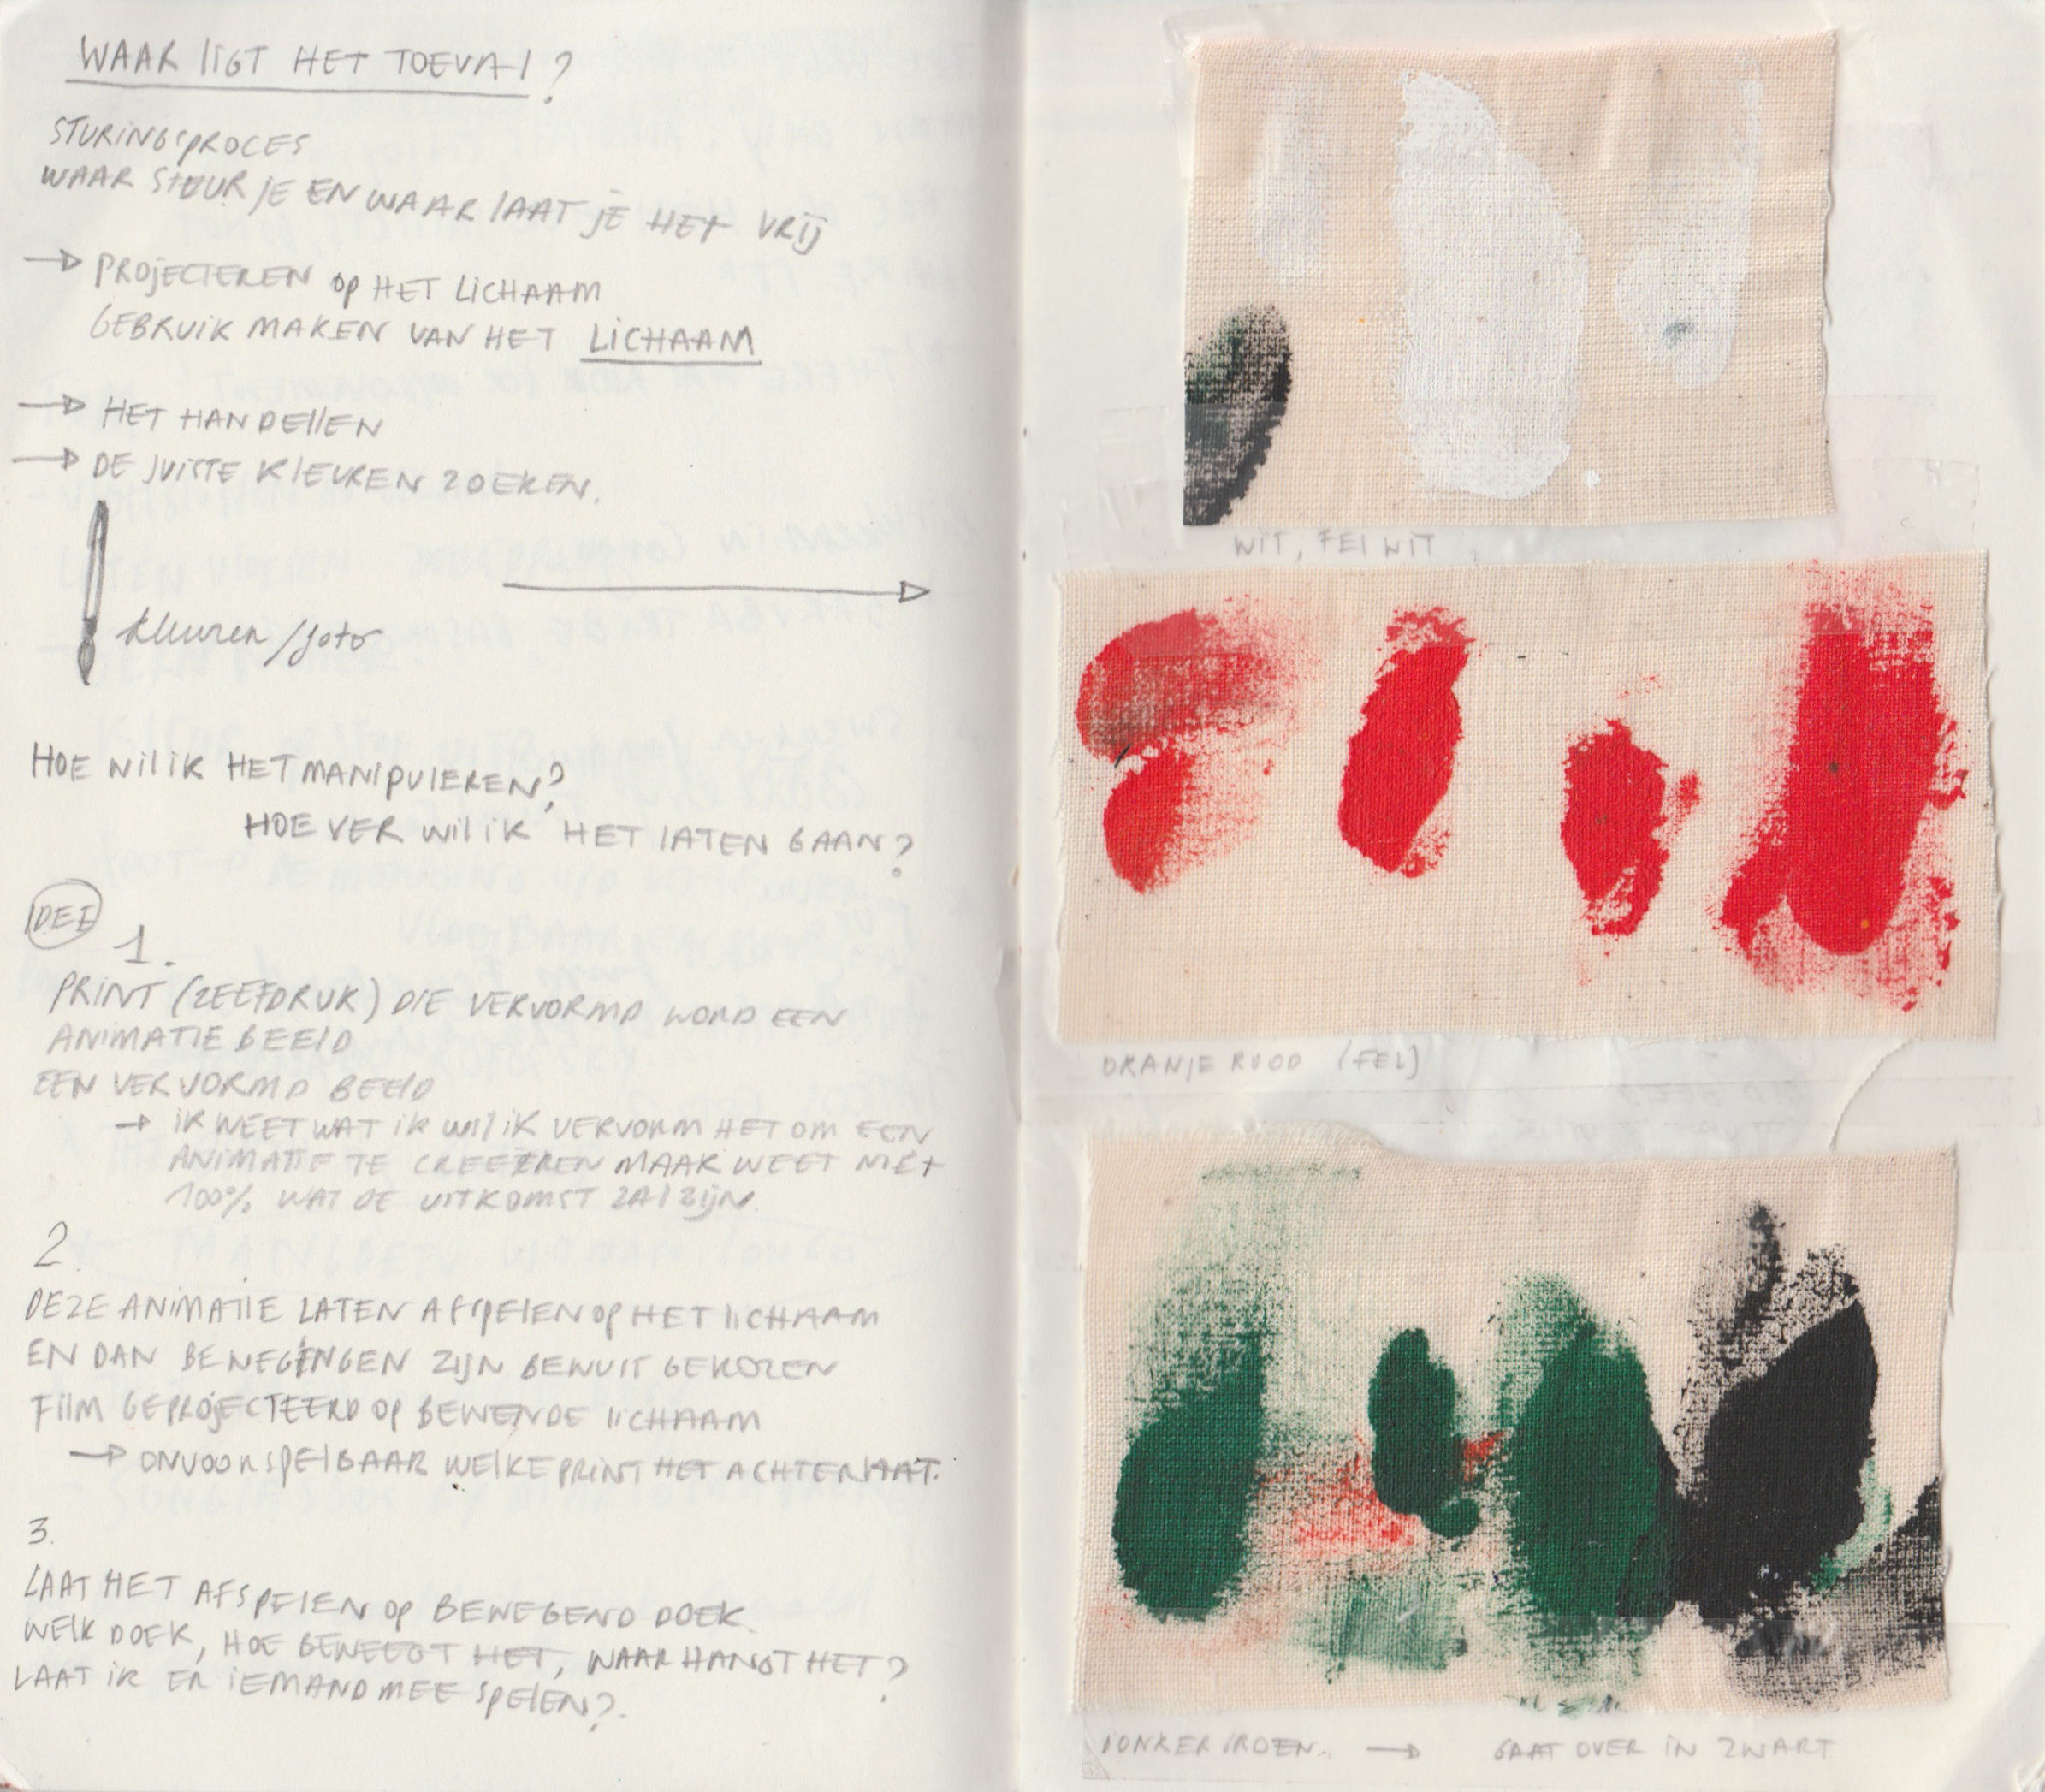 WAAR LIGT HET TOEVAL?
STURINGSPROCES
WAAR STUUR JE EN WAAR LAAT JE HET VRIJ
→ PROJECTEREN OP HET LICHAAM
GEBRUIK MAKEN VAN HET LICHAAM
→ HET HANDELLEN
→ DE JUISTE KLEUREN ZOEKEN.
kleuren/foto
HOE WIL IK HET MANIPULEREN?
HOE VER WIL IK HET LATEN GAAN?
IDEE
1.
PRINT (ZEEFDRUK) DIE VERVORMD WORD EEN
ANIMATIE BEELD
EEN VERVORMD BEELD
→ IK WEET WAT IK WIL IK VERVORM HET OM EEN
ANIMATIE TE CREEEREN MAAR WEET NIET
100% WAT DE UITKOMST ZAL ZIJN.
2.
DEZE ANIMATIE LATEN AFSPELEN OP HET LICHAAM
EN DAN BEWEGINGEN ZIJN BEWUST GEKOZEN
FILM GEPROJECTEERD OP BEWENDE LICHAAM
→ ONVOORSPELBAAR WELKE PRINT HET ACHTERLAAT.
3.
LAAT HET AFSPELEN OP BEWEGEND DOEK.
WELK DOEK, HOE BEWEEGT HET, WAAR HANGT HET?
LAAT IK ER IEMAND MEE SPELEN?.
WIT, FEL WIT
ORANJE ROOD (FEL)
DONKER GROEN. → GAAT OVER IN ZWART